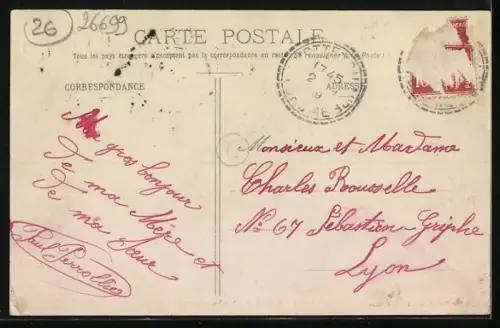 26
26699
CARTE POSTALE
Tous les pays étrangers n'acceptent pas la correspondance au recto. (Se renseigner à la Poste)
CORRESPONDANCE
ADRESSE
17 45
2
Un gros bonjour
de ma Mère et
de ma sœur
Paul
Monsieur et Madame
Charles Rousselle
No 67 Sébastien-Griphe
Lyon